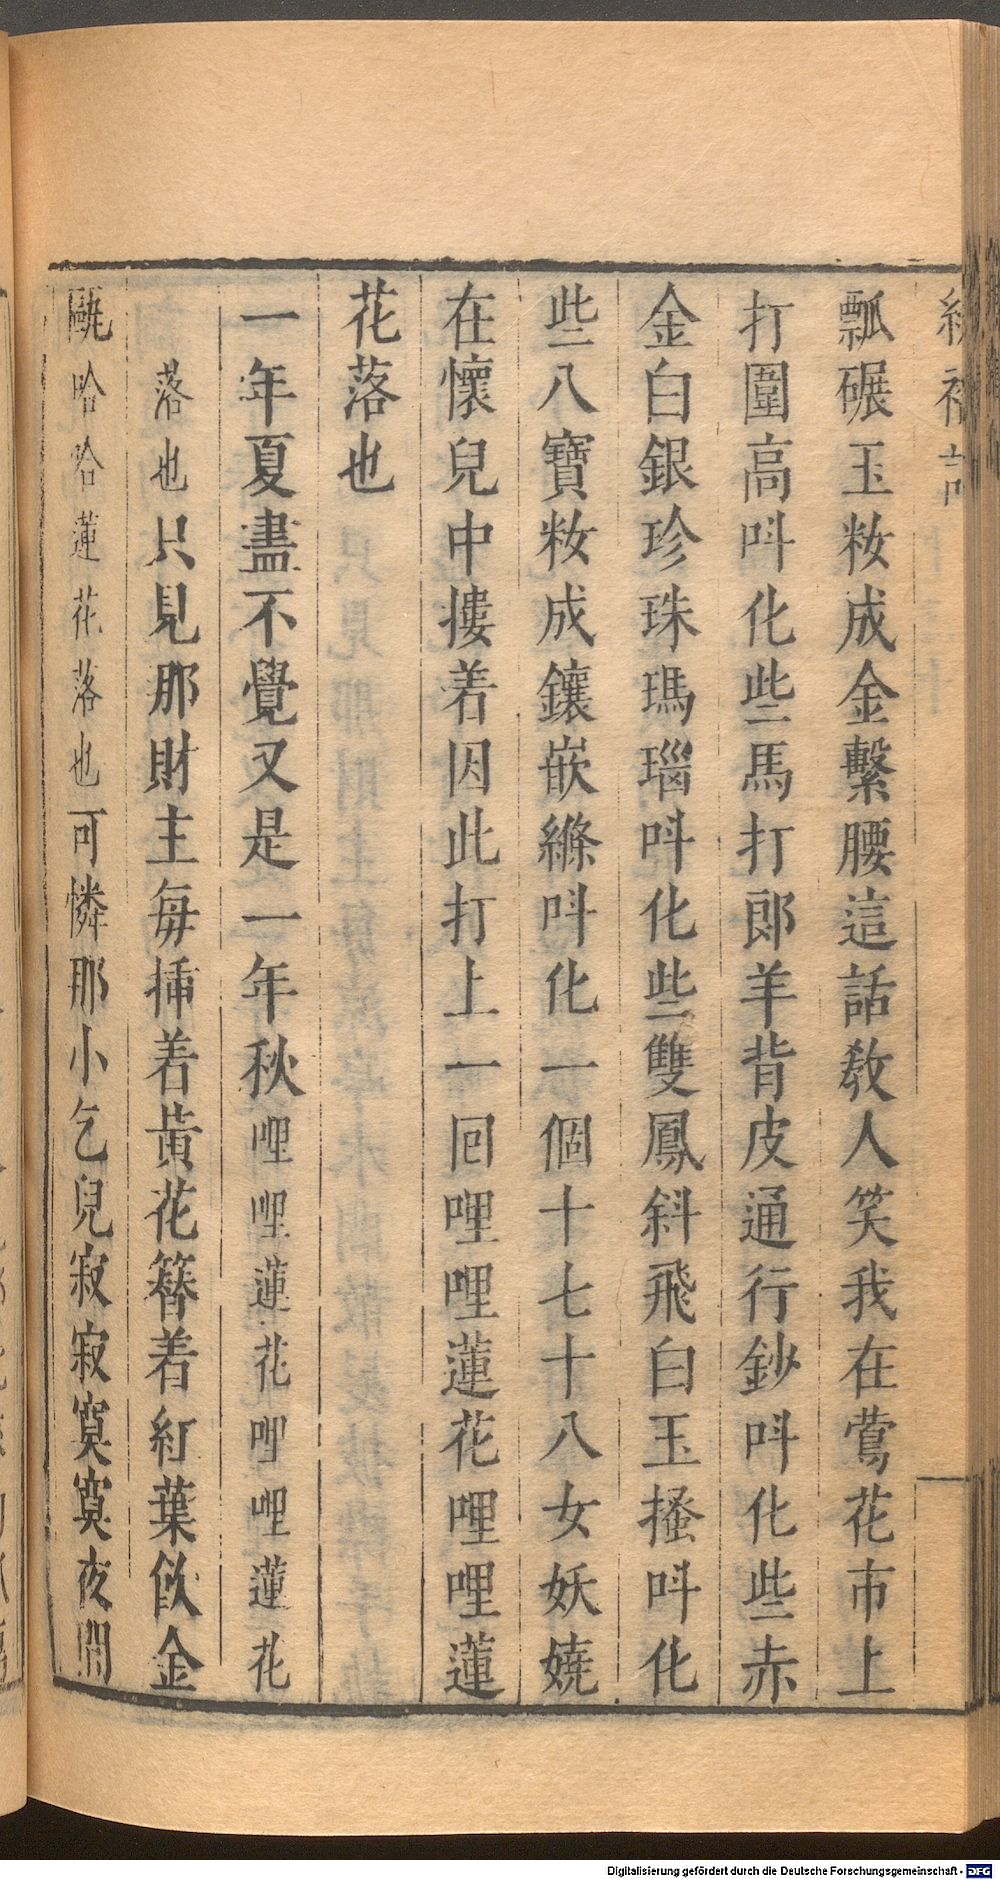 瓢碾玉妝成金繫腰這話教人笑我在鶯花市上
打圍高呌化些馬打郎羊背皮通行鈔呌化些赤
金白銀珍珠瑪瑙呌化些雙鳳斜飛白玉搔呌化
些八寶妝成鑲嵌縧呌化一個十七十八女妖嬈
在懷兒中摟着因此打上一囘哩哩蓮花哩哩蓮
花落也
一年夏盡不覺又是一年秋哩哩蓮花哩哩蓮花
落也只見那財主每揷着黃花簪着紅葉飲金
甌哈哈蓮花落也可憐那小乞兒寂寂寞寞夜間
Digitalisierung gefördert durch die Deutsche Forschungsgemeinschaft - DFG